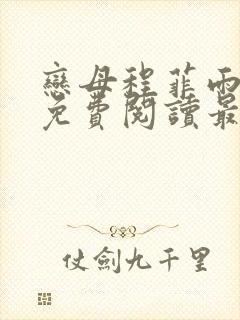 戀母程菲雨
免費閱讀最
仗劍九千里